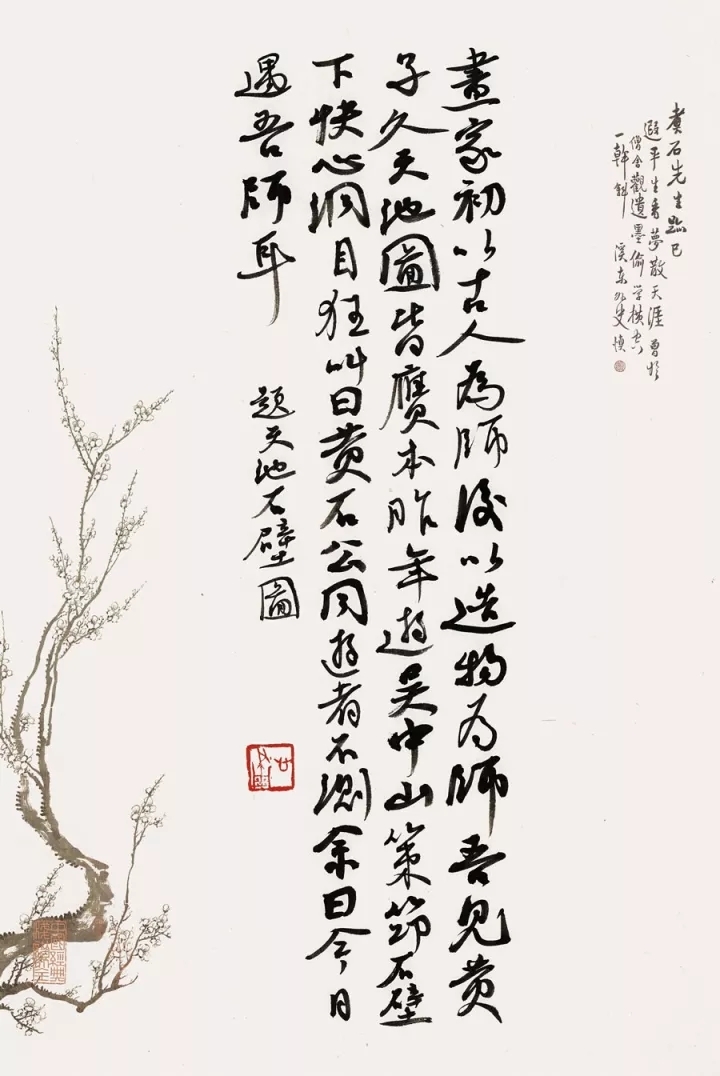 煮石先生跡已
遐平生香夢散天涯曾於
僧舍觀遺墨偷学橫窗
一幹斜 溪東外史慎
畫家初以古人為師後以造物為師吾見黄
子久天池圖皆贗本昨年遊吳中山策筇石壁
下快心洞目狂叫曰黄石公同遊者不測余曰今日
遇吾師耳
題天池石壁圖